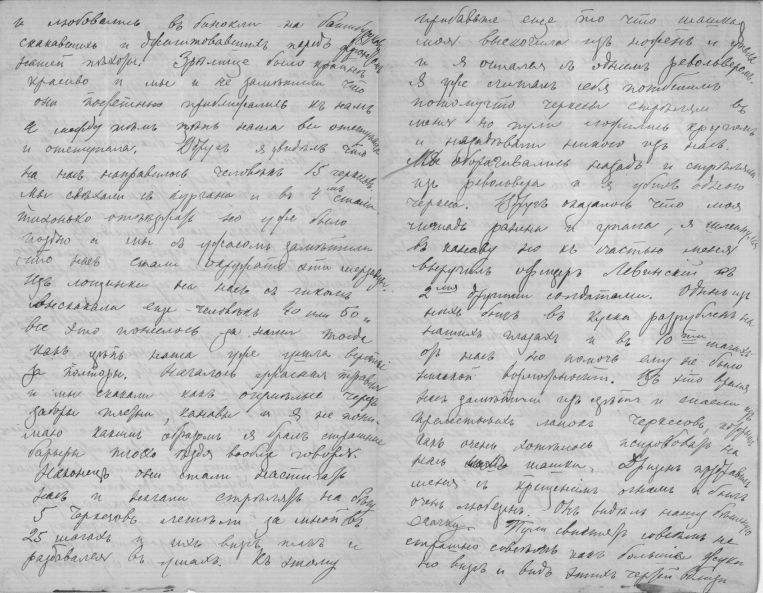 и любовались въ бинокли на
скакавшихъ и джигитовавшихъ передъ
нашей Зрѣлище было
красиво и мы и не замѣтили что
они постепенно приближались къ намъ
а между тѣмъ цѣпь наша все отступала
и отступала. Вдругъ я увидѣлъ что
на насъ направилось человѣкъ 15 черкесовъ
мы съѣхали съ кургана и въ 4мъ стали
тихонько отъѣзжать но уже было
поздно и мы съ ужасомъ замѣтили
что насъ стали
Изъ лощинки на насъ съ гикомъ
выскакали еще человѣкъ 40 или 50
все это понеслось за нами тогда
какъ цѣпь наша уже ушла версты
за полторы. Началась страшная травля
и мы скакали какъ черезъ
заборы плетни, канавы и я не пони-
маю какимъ образомъ я бралъ страшные
барьеры плохо ѣздя вообще говоря.
Наконецъ они стали настигать
насъ и начали стрѣлять на
5 Черкесовъ летѣли за мной въ
25 шагахъ и ихъ визгъ такъ и
раздавался въ ушахъ. Къ этому
прибавьте еще то что шашка
моя выскочила изъ ноженъ и
и я остался съ однимъ револьверомъ.
Я уже считалъ себя погибшимъ
потому что черкесы стрѣляли въ
меня но пули ложились кругомъ
и не задѣвали никого изъ насъ.
Мы оборачивались назадъ и стрѣляли
изъ револьвера и я убилъ одного
черкеса. Вдругъ оказалось что моя
лошадь ранена и упала, я
въ канаву но къ счастью меня
выручилъ офицеръ Левинскій съ
2мя другими солдатами. Одинъ изъ
нихъ былъ въ куски разрубленъ на
нашихъ глазахъ и въ 10ти шагахъ
отъ насъ но помочь ему не было
никакой возможности. Въ это время
насъ замѣтили изъ цѣпи и спасли изъ
прелестныхъ лапокъ Черкесовъ,
какъ очень хотѣлось попробовать на
насъ шашки. поздравилъ
меня съ крещеніемъ огнемъ и былъ
очень любезенъ. Онъ видѣлъ нашу
скачку. Пули свистятъ совсѣмъ не
страшно какъ большіе жуки
но визгъ и видъ этихъ чертей